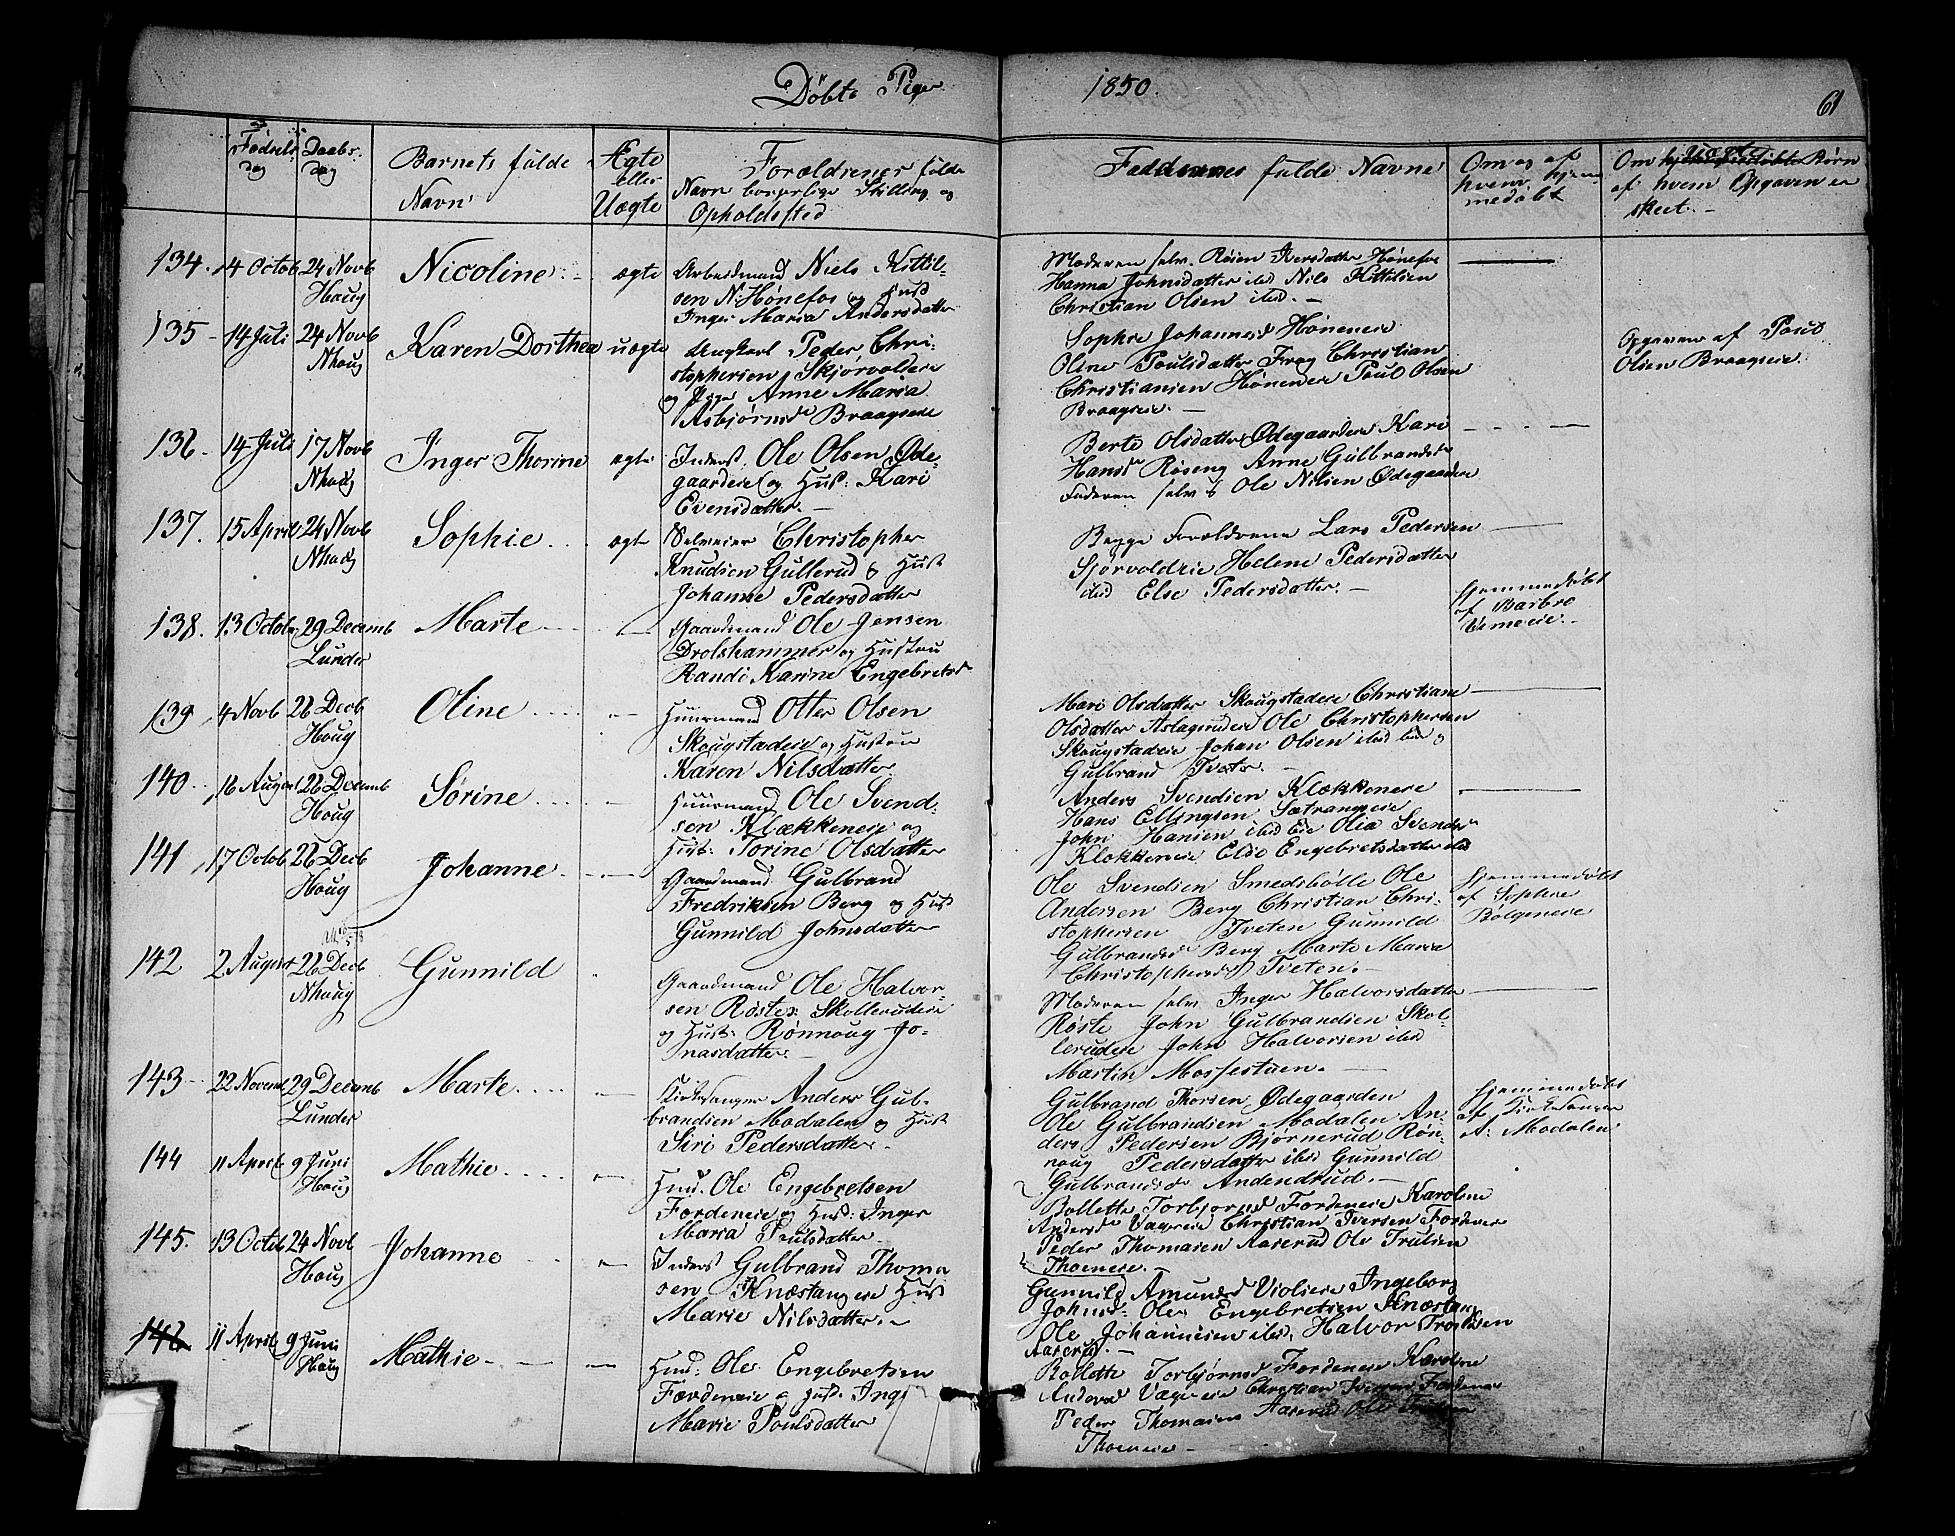 Døbte Piger 1850.
61
Fødsels dag
Daabs- dag
Barnets fulde Navn
Ægte eller Uægte
Forældrenes fulde
Navn borgerlige Stilling og
Opholdssted
Faddernes fulde Navne
Om og af
hvem hjem
medøbt
Om Uægte Børn
af hvem Opgaven er
skeet.-
134. 14 Octob 24 Novb Haug Nicoline ægte
Arbeidsmand Niels Kittil-
sen N: Hønefos og Hust
Inger Maria Andersdatter
Moderen selv. Iversdatter Hønefos
Hanna Johnsdatter ibid Nils Kittilsen
Christian Olsen ibid.-
135 14 Juli 24 Novb Nhoug Karen Dorthea uægte
Ungkarl Peder Chri-
stophersen Skjørvoldeie
og Anne Maria
Asbjørnsd Braagseie
Sophie Johannesd Høneneie
Oline Poulsdatter Frog Christian
Christiansen Høneneie Poul Olsen
Braagseie.-
Opgaven af Poul
Olsen Braagseie
136. 14 Juli 17 Novb Nhoug Inger Thorine egte
Inderst. Ole Olsen Øde-
gaardeie og Hust: Kari
Evensdatter.-
Berte Olsdatter Ødegaardeie Kari
Hansd Røseng Anne Gulbrandsd
Faderen selv Ole Nilsen Ødegaarden
137. 15 April 24 Novb Nhoug Sophie egte
Selveier Christopher
Knudsen Gullerud og Hust
Johanne Pedersdatter
Begge Forældrene Lars Pedersen
Sjørvoldeie Helene Pedersdatter
ibid Else Pedersdatter.-
138. 13 Octob 29 Decemb Lunder Marte
Gaardmand Ole Jensen
Drolshammer og Hustru
Randi Karine Engebretsd
Hjemmedøbt
af Barbro
139 4 Novb 26 Decb Houg Oline
Huusmand Otter Olsen
Skougstadeie og Hustru
Karen Nilsdatter
Mari Olsdatter Skougstadeie Christiane
Olsdatter Aslagsrudeie Ole Christophersen
Skougstadeie Johan Olsen ibid og
Gulbrand Tveter.-
140 16 August 26 Decemb Houg Sørine
Huusmand Ole Svend-
sen Klækkeneie og
Hust: Torine Olsdatter
Anders Svendsen Klækkeneie
Hans Ellingsen Sætrangseie
John Hansen ibid eie Olia Svendsd
Klækkeneie Else Engebretsdatter ibid
141 17 Octob 26 Decb Houg Johanne
Gaardmand Gulbrand
Fredriksen Berg og Hust
Gunnild Johnsdatter
Ole Svendsen Smedsbølle Ole
Andersen Berg Christian Chri-
stophersen Tveten Gunnild
Gulbrandsd Berg Marte Marie
Christophersd Tveten.-
Hjemmedøbt
af Sophie
Bølgeneie
142 2 August 26 Decb Nhoug Gunnild
Gaardmand Ole Halvor-
sen Røste Skollerudeie
og Hust: Rønnoug Jo-
nasdatter
Moderen selv Inger Halvorsdatter
Røste John Gulbrandsen Skol-
lerudeie John Halvorsen ibid
Martin Mossestuen.-
143 22 Novemb 29 Decemb Lunder Marte
Kirkesanger Anders Gul-
brandsen Modalen og Hust
Siri Pedersdatter.-
Gulbrand Thorsen Ødegaarden
Ole Gulbrandsen Modalen An-
ders Pedersen Bjørnerud Røn-
noug Pedersdatter ibid Gunnild
Gulbrandsd
Hjemmedøbt
af Kirkesanger
A. Modalen
144 11 April 9 Juni Houg Mathie
Huu. Ole Engebretsen
Færdeneie og Hust: Inger
Maria Poulsdatter
Bollette Torbjørnsd Færdeneie Karoline
Andersd Vageneie Christian Iversen Færdeneie
Peder Thomasen Aaserud Ole Trulsen
Thoeneie.-
145. 13 Octob 24 Novb Houg Johanne
Inderst Gulbrand Thoma
sen Knæstangeie Hust
Marie Nilsdatter.-
Gunnild Amundsd Violieie Ingeborg
Johnsd: Ole Engebretsen Knæstang
Ole Johannesen ibid, Halvor
Aaserud.-
146 11 April 9 Juni Houg Mathie
Huu: Ole Engebretsen
Færdeneie og Hust. Inge
Marie Poulsdatter
Bollette Torbjørnsd Færdeneie Karoline
Andersd Vageneie Christian Iversen Færdeneie
Peder Thomasen Aaserud Ole Trulsen
Thoeneie-